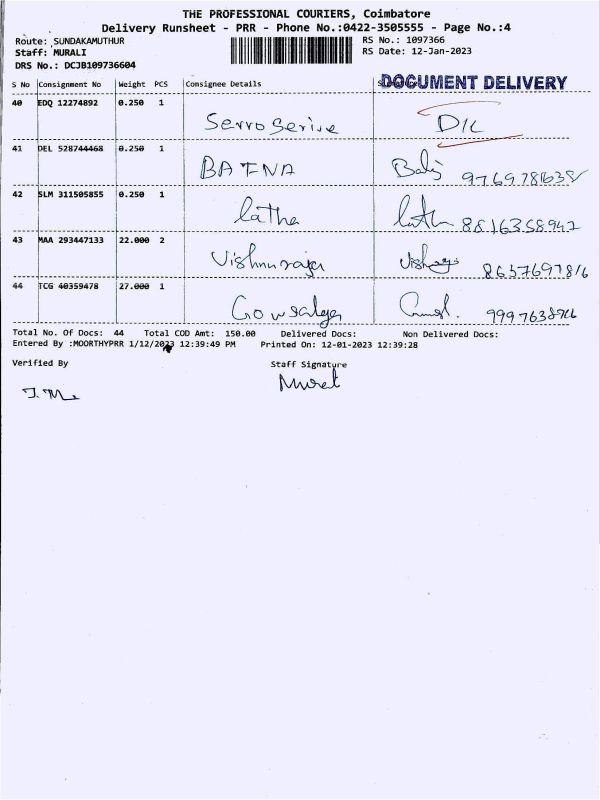 THE PROFESSIONAL COURIERS, Coimbatore
Delivery Runsheet - PRR - Phone No.:0422-3505555 - Page No.:4
Route: SUNDAKAMUTHUR RS No.: 1097366
Staff: MURALI RS Date: 12-Jan-2023
DRS No.: DCJB109736604
S No Consignment No Weight PCS Consignee Details DOCUMENT DELIVERY
40 EDQ 12274892 0.250 1
Servo Serive D1L
41 DEL 528744468 0.250 1
BAFNA
42 SLM 311505855 0.250 1
latha 8816358942
43 MAA 293447133 22.000 2
Vishnuraja 8657697816
44 TCG 40359478 27.000 1
Gowsalya
Total No. Of Docs: 44 Total COD Amt: 150.00 Delivered Docs: Non Delivered Docs:
Entered By :MOORTHYPRR 1/12/2023 12:39:49 PM Printed On: 12-01-2023 12:39:28
Verified By Staff Signature
Murali